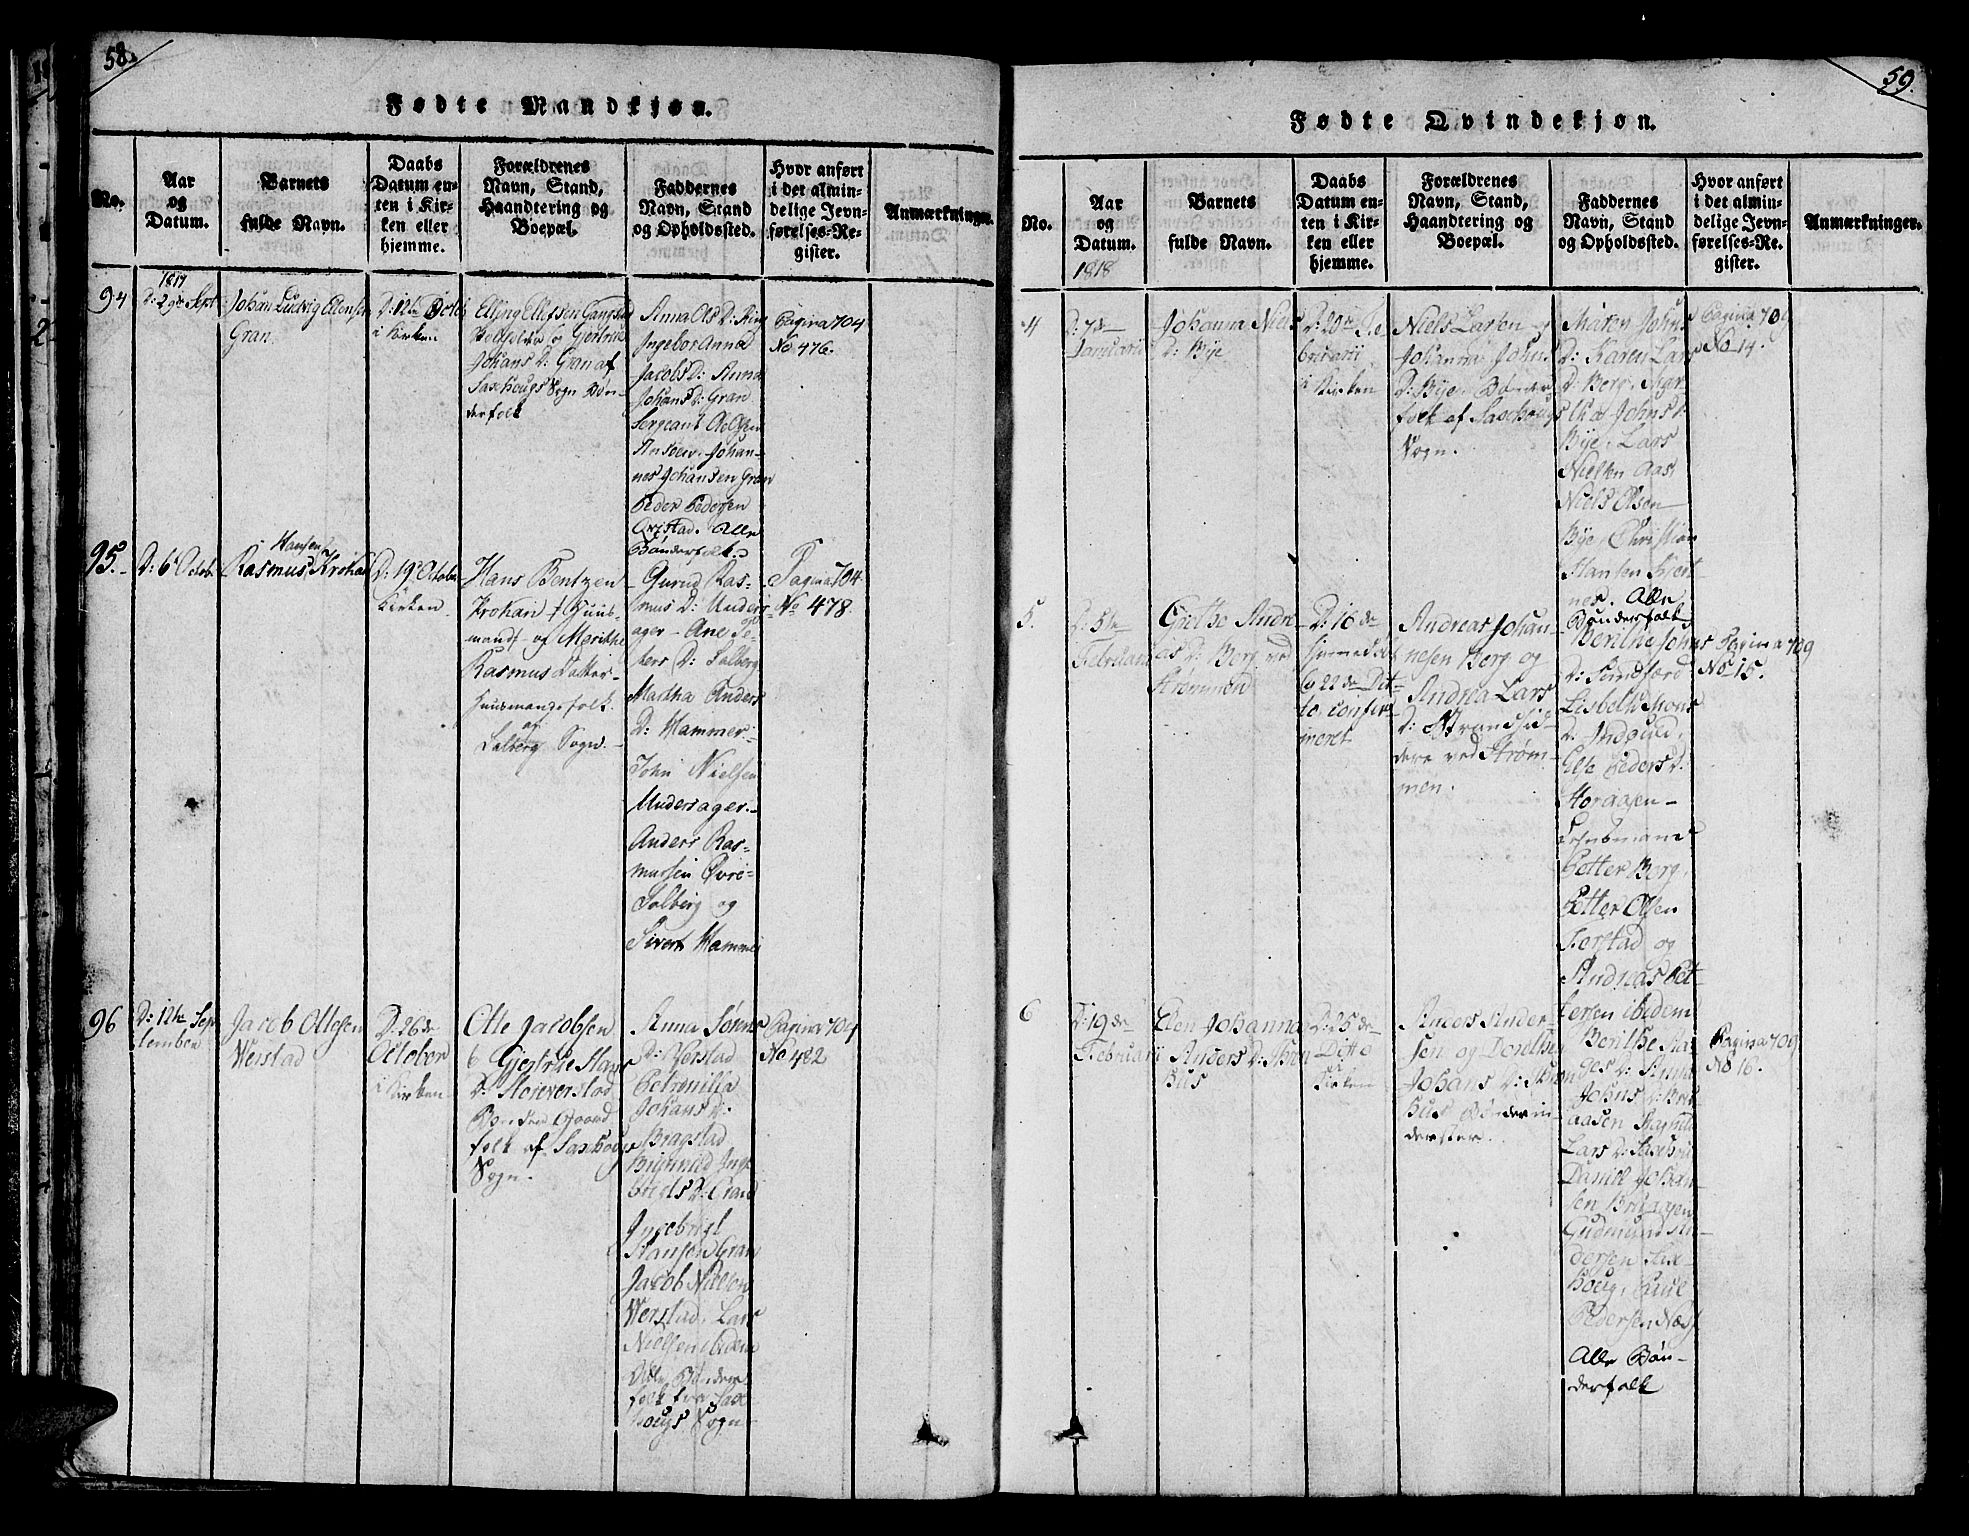 58.
Fødte Mandkjøn.
No.
Aar
og
Datum.
Barnets
fulde Navn.
Daabs
Datum en-
ten i Kir-
ken eller
hjemme.
Forældrenes
Navn, Stand,
Haandtering og
Boepæl.
Faddernes
Navn, Stand
og Opholdssted.
Hvor anført
i det almin-
delige Jevn-
førelses-Re-
gister.
Anmærkninger.
94
1817
D: 29de Sept
Johan Ludvig Ellensen
Gran
D: 12te Octob
i Kirken
Elling Ellefsen
og Gjertrue
Johans D: Gran af
Saxhougs Sogn Bøn-
derfolk
Anna Ols D:
Ingebor Anna
Jacobs D: Anna
Johans D: Gran
Sergeant
Johan-
nes Johansen Gran
Peder Pedersen
Qvistad. Alle
Bønderfolk.
Pagina 704
No 476.
95.
D: 6 Octob
Hansen
Rasmus Krokan
D: 19 October
Kirken.
Hans Bentzen
Krokan Huus-
mand og Marithe
Rasmus Datter
Huusmandsfolk
af
Salberg Sogn.
Gurud Ras-
mus D: Unders-
ager - Ane Pe-
ders D: Salberg
Madha Anders
D: Hammer-
John Nielsen
Undersager.-
Anders Ras-
mussen Øvre-
Salberg og
Sivert Hammer
Pagina 704
No 478.
96
D: 12te Sep
tember
Jacob Ottesen
Werstad
D: 26de
October
i Kirken
Otte Jacobsen
Gjertrue Hans
D: Storeverstad
Gaard
folk af Saxhougs
Sogn.
Anna Søuns
D: Verstad
Petronilla
Johans D:
Bragstad
Ingebrigt
Hansen Gran
Jacob Nielsen
Werstad, Lars
Nielsen ibidem
Alle Bønder
folk fra Sax
hougs Sogn
Pagina 704
No 482
59.
Fødte Qvindekjøn.
No.
Aar
og
Datum.
1818
Barnets
fulde Navn.
Daabs
Datum en-
ten i Kir-
ken eller
hjemme.
Forældrenes
Navn, Stand,
Haandtering og
Boepæl.
Faddernes
Navn, Stand
og Opholdssted.
Hvor anført
i det almin-
delige Jevn-
førelses-Re-
gister.
Anmærkninger.
4
D: 7de
Januarii
Johanna Niels
D: Bye
D: 20de Fe
bruarii
i Kirken
Niels Larsen og
Johanna Johns
D: Bye, Bønder
folk af Saxhougs
Sogn.
Maren Johns
D: Karen Lars
D: Berg, Mar
tha Johns D:
Bye, Lars
Nielsen Aas
Niels Olsen
Bye, Christian
Hansen
Alle
Bønderfolk
Pagina 709
No 14.
5.
D: 5te
Februarii
Grethe Andre
as D: Berg ved
Strømmen
D: 16de
hjemmedøbt
22de Dit-
to confir
meret
Andreas Johan-
nesen Berg og
Andrea Lars
D: Strandsid-
dere ved Strøm-
men.
Benthe Johns
D: Sundfærd
Lisbeth Mons
D:
Else Peders D:
Lensmand
Petter Berg,
Petter Olsen
og
Andreas Pet-
tersen ibidem
Pagina 709
No 15.
6
D: 19de
Februarii
Elen Johanna
Anders D:
D: 25de
Ditto
Kirken
Anders Ander-
sen og Dorethea
Johans D:
hus Bønder in
derster.
Benthe
D: Anna
Johns D: Bre
aasen
Lars D: Saxhoug
Daniel Johan
sen Breaasen
Gudmund An-
dersen Sax
houg, Paul
Pedersen Næss
Alle Bøn-
derfolk
Pagina 709
No 16.